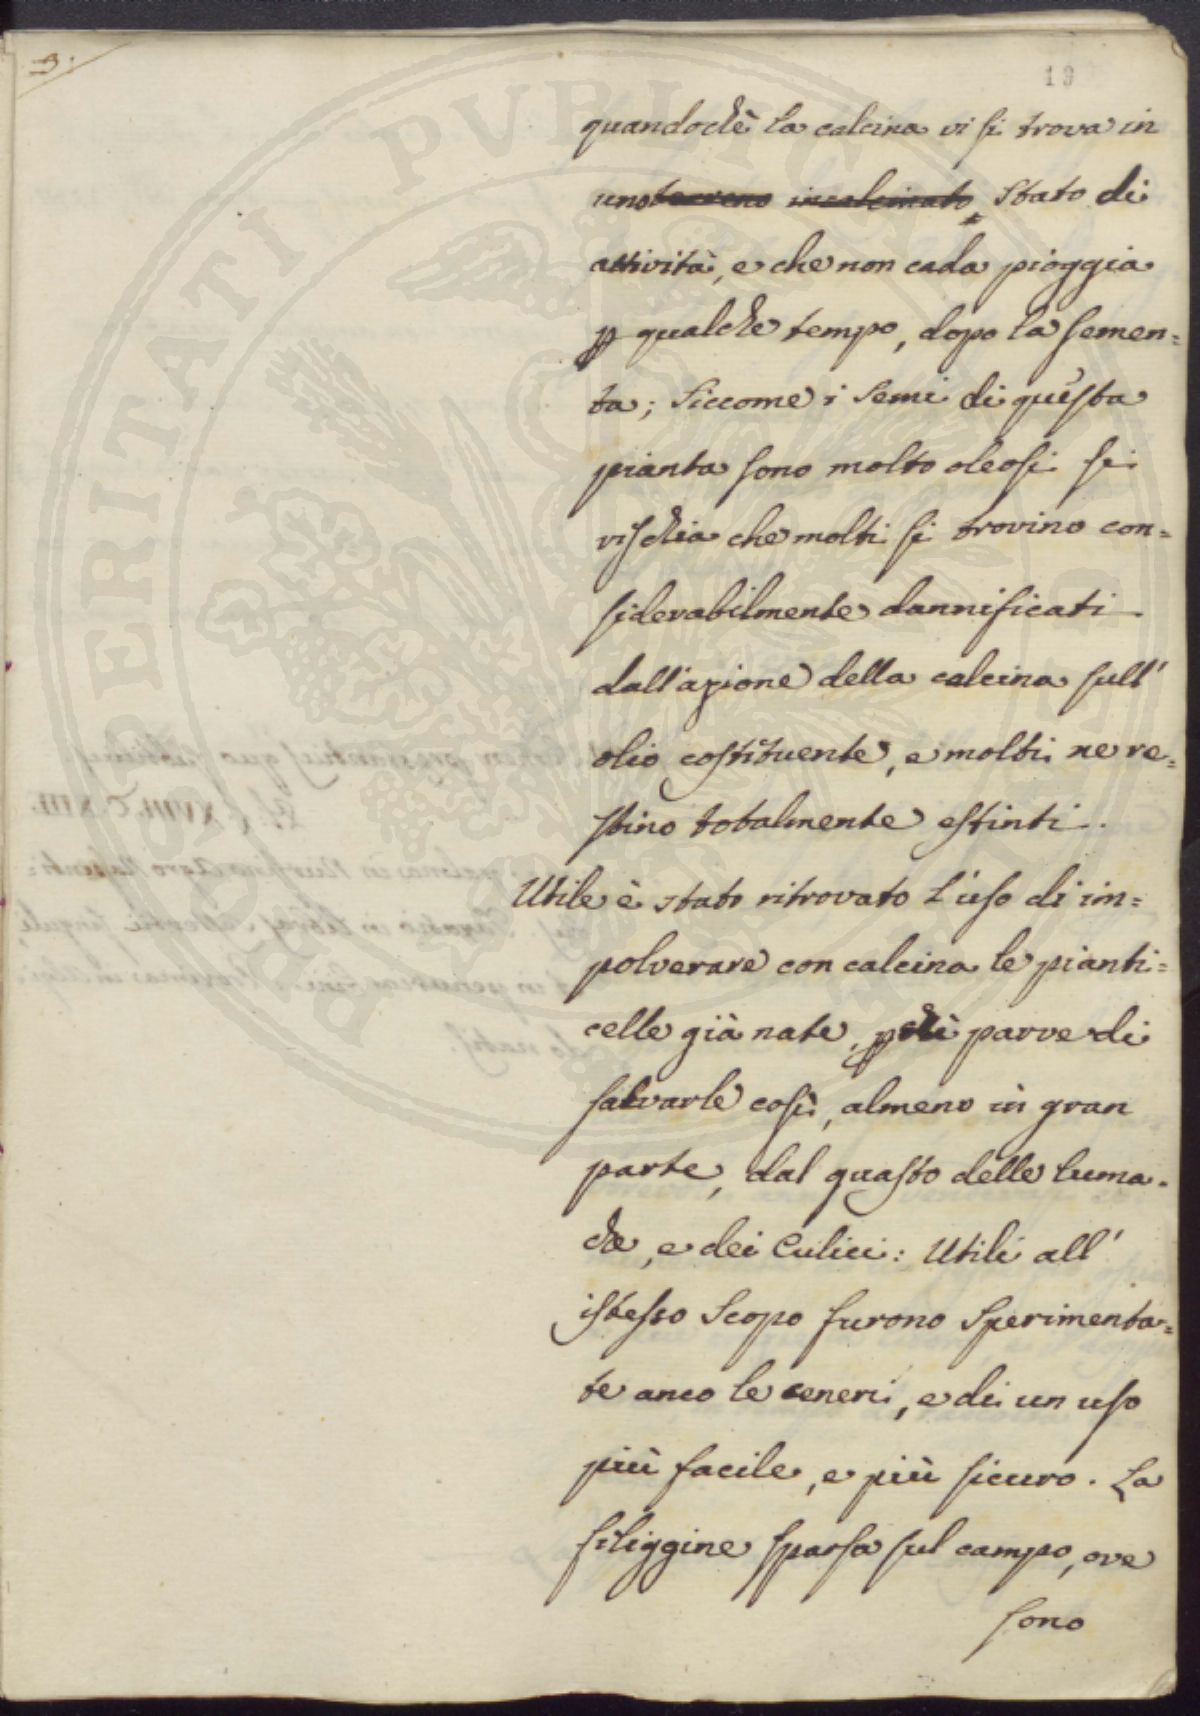 9.
19
quandochè la calcina vi si trova in
uno terreno incalcinato stato di
attività, e che non cada pioggia
p qualche tempo, dopo la semen=
ta; siccome i semi di questa
pianta sono molto oleosi si
rischia che molti si trovino con=
siderabilmente dannificati
dall'azione della calcina sull'
olio costituente, e molti ne re=
stino totalmente estinti.
Utile è stato ritrovato l'uso di im=
polverare con calcina le pianti=
celle già nate, pchè parve di
salvarle così, almeno in gran
parte, dal guasto delle luma=
che, e dei Culici: Utili all'
istesso scopo furono sperimenta=
te anco le ceneri, e di un uso
più facile, e più sicuro. La
filiggine sparsa sul campo, ove
sono
PROSPERITATI PUBLICAE